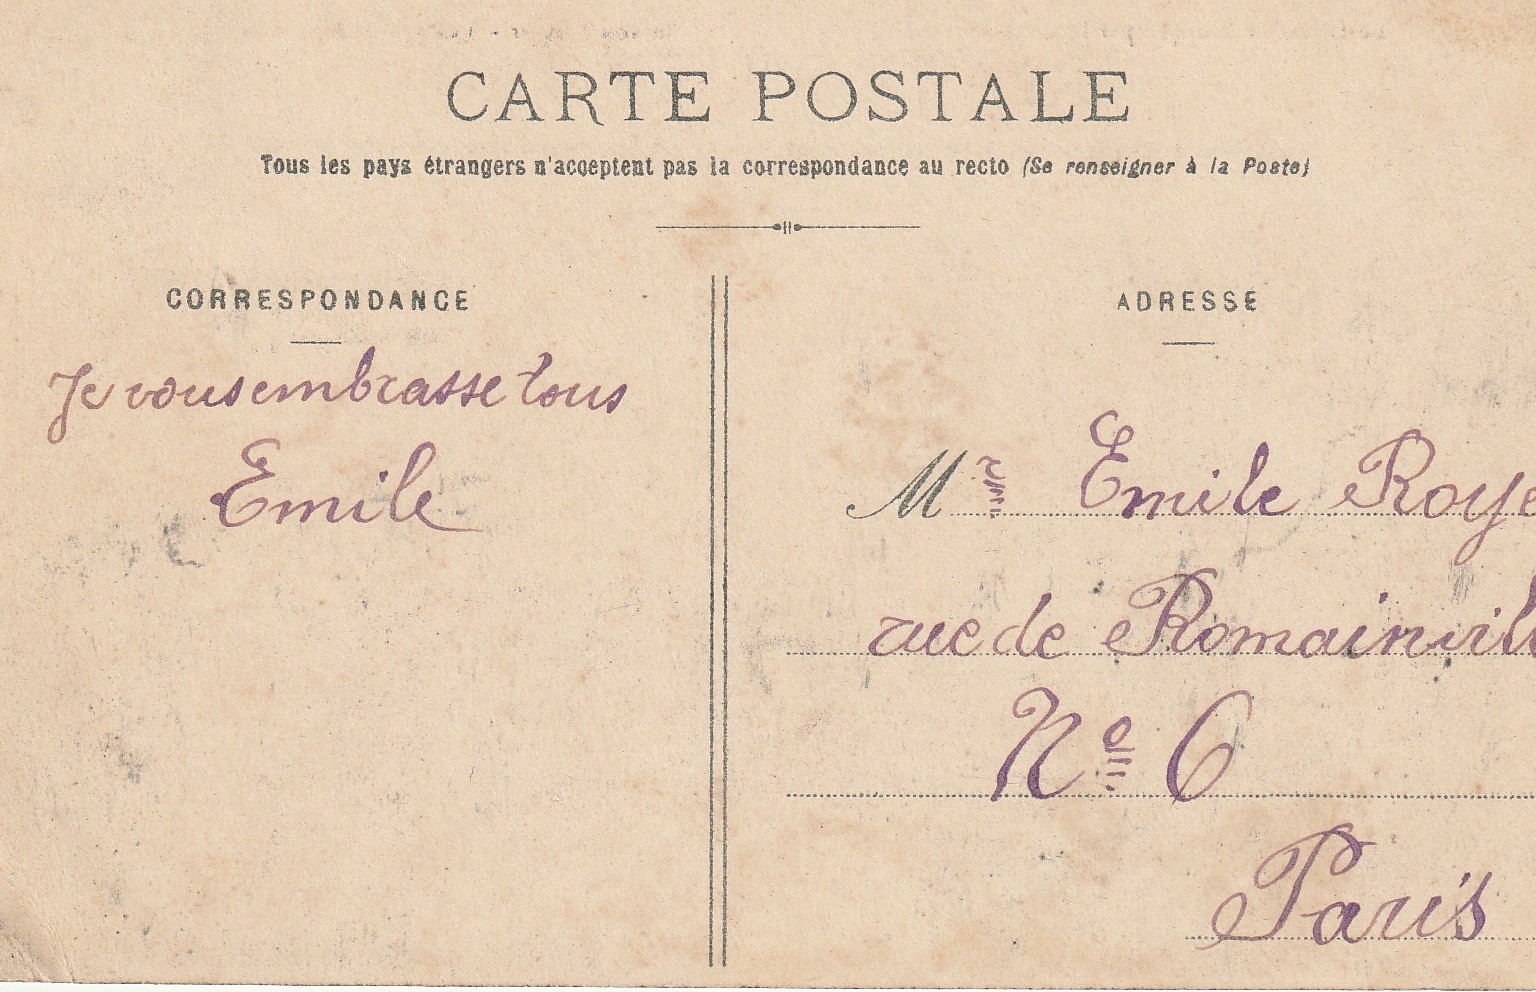 CARTE POSTALE
Tous les pays étrangers n'acceptent pas la correspondance au recto (Se renseigner à la Poste)
CORRESPONDANCE
Je vous embrasse tous
Emile
ADRESSE
Mr Emile Roye
rue de Romainvill
No 6
Paris